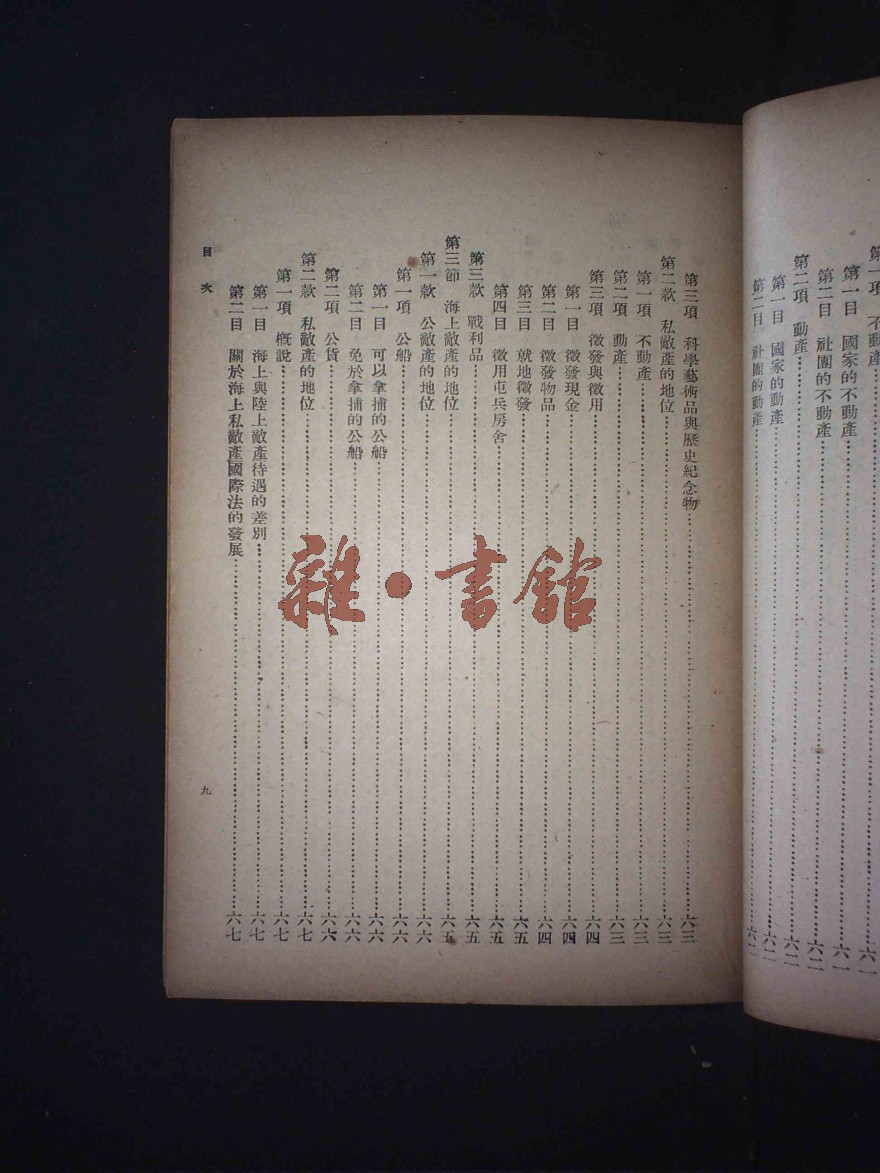 第一項 不動產
第一目 國家的不動產……六一
第二目 社團的不動產……六二
第二項 動產……六二
第一目 國家的動產……六二
第二目 社團的動產……六二
第三項 科學藝術品與歷史紀念物……六三
第二款 私敵產的地位……六三
第一項 不動產……六三
第二項 動產……六三
第三項 徵發與徵用……六四
第一目 徵發現金……六四
第二目 徵發物品……六四
第三目 就地徵發……六五
第四目 徵用屯兵房舍……六五
第三款 戰利品……六五
第三節 海上敵產的地位……六五
第一款 公敵產的地位……六六
第一項 公船……六六
第一目 可以拿捕的公船……六六
第二目 免於拿捕的公船……六六
第二項 公貨……六六
第二款 私敵產的地位……六七
第一項 概說……六七
第一目 海上與陸上敵產待遇的差別……六七
第二目 關於海上私敵產國際法的發展……六七
目次
九
雜·書館